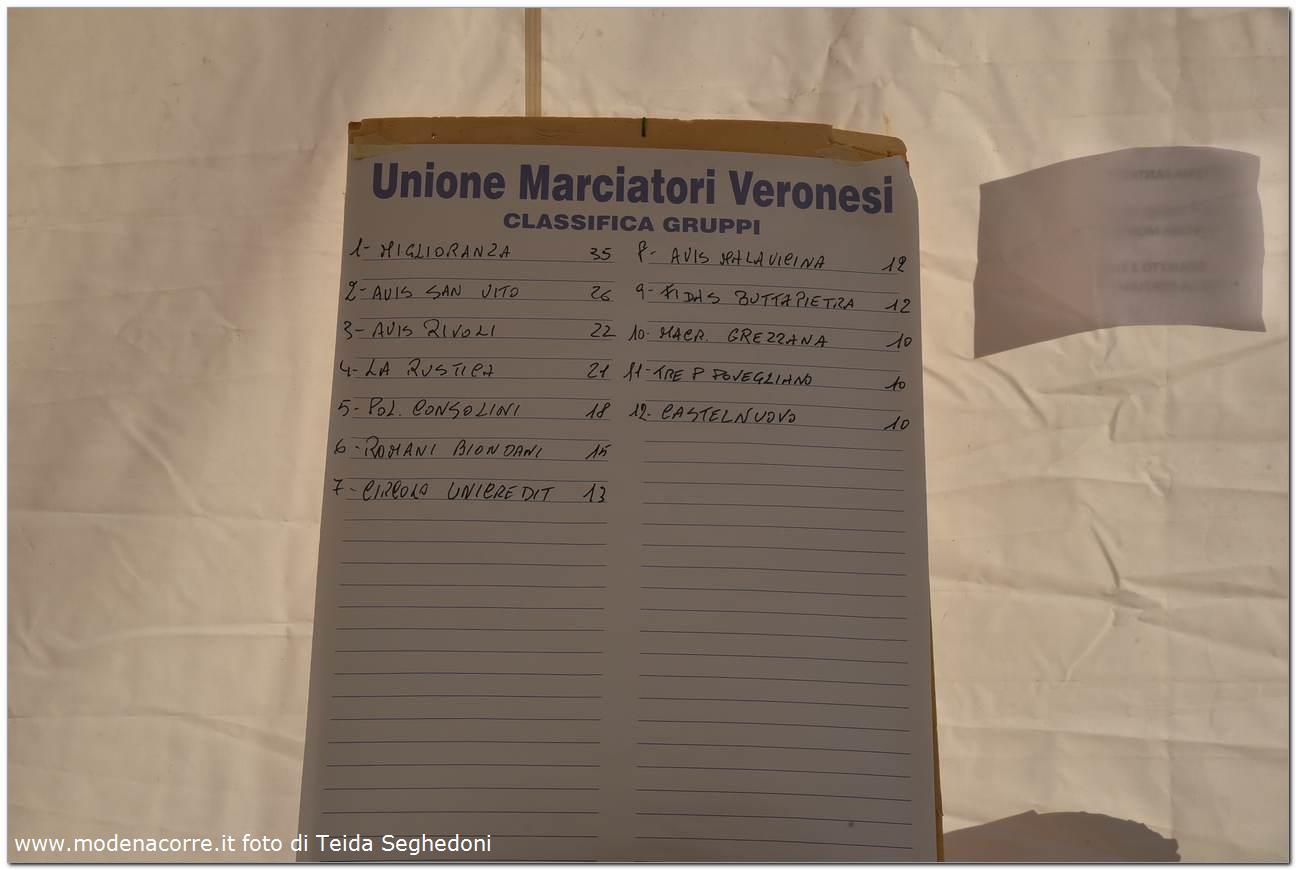 Unione Marciatori Veronesi
CLASSIFICA GRUPPI
1- MIGLIORANZA 35
2- AVIS SAN VITO 26
3- AVIS RIVOLI 22
4- LA RUSTICA 21
5- POL. CONSOLINI 18
6- ROMANI BIONDANI 15
7- CIRCOLO UNICREDIT 13
8- AVIS MALAVICINA 12
9- FIDAS BUTTAPIETRA 12
10- MACR. GREZZANA 10
11- TRE P POVEGLIANO 10
12- CASTELNUOVO 10
www.modenacorre.it foto di Teida Seghedoni